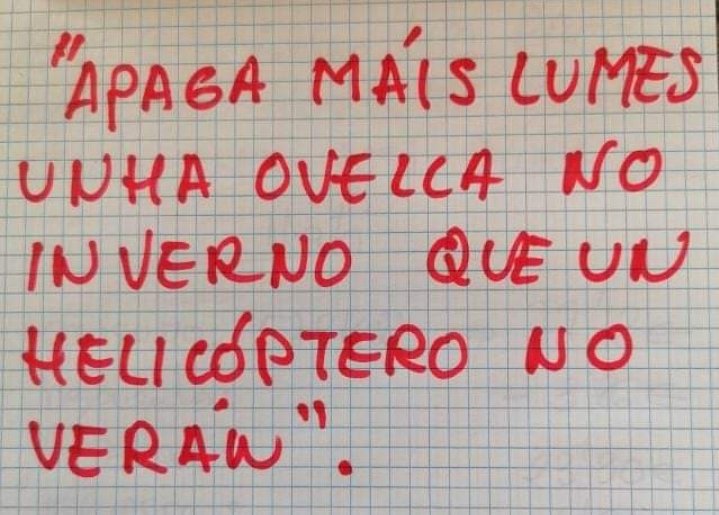 "APAGA MÁIS LUMES
UNHA OVELLA NO
INVERNO QUE UN
HELICÓPTERO NO
VERÁN".